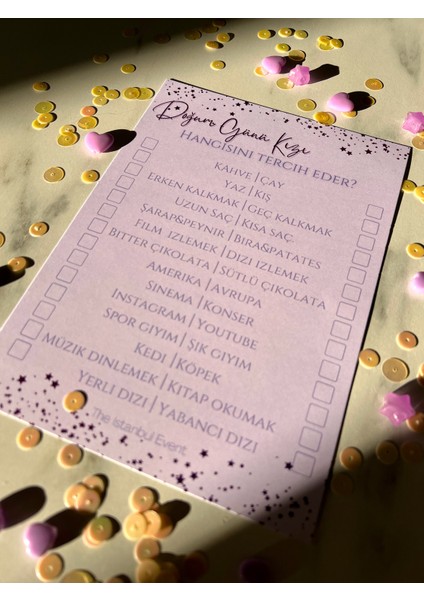 Doğum Günü Kızı
HANGİSİNİ TERCİH EDER?
KAHVE | ÇAY
YAZ | KIŞ
ERKEN KALKMAK | GEÇ KALKMAK
UZUN SAÇ | KISA SAÇ
ŞARAP&PEYNİR | BİRA&PATATES
FILM IZLEMEK | DIZI IZLEMEK
BİTTER ÇİKOLATA | SÜTLÜ ÇİKOLATA
AMERIKA | AVRUPA
SINEMA | KONSER
INSTAGRAM | YOUTUBE
SPOR GIYIM | ŞIK GIYIM
KEDI | KÖPEK
MÜZIK DINLEMEK | KITAP OKUMAK
YERLI DIZI | YABANCI DIZI
The Istanbul Event